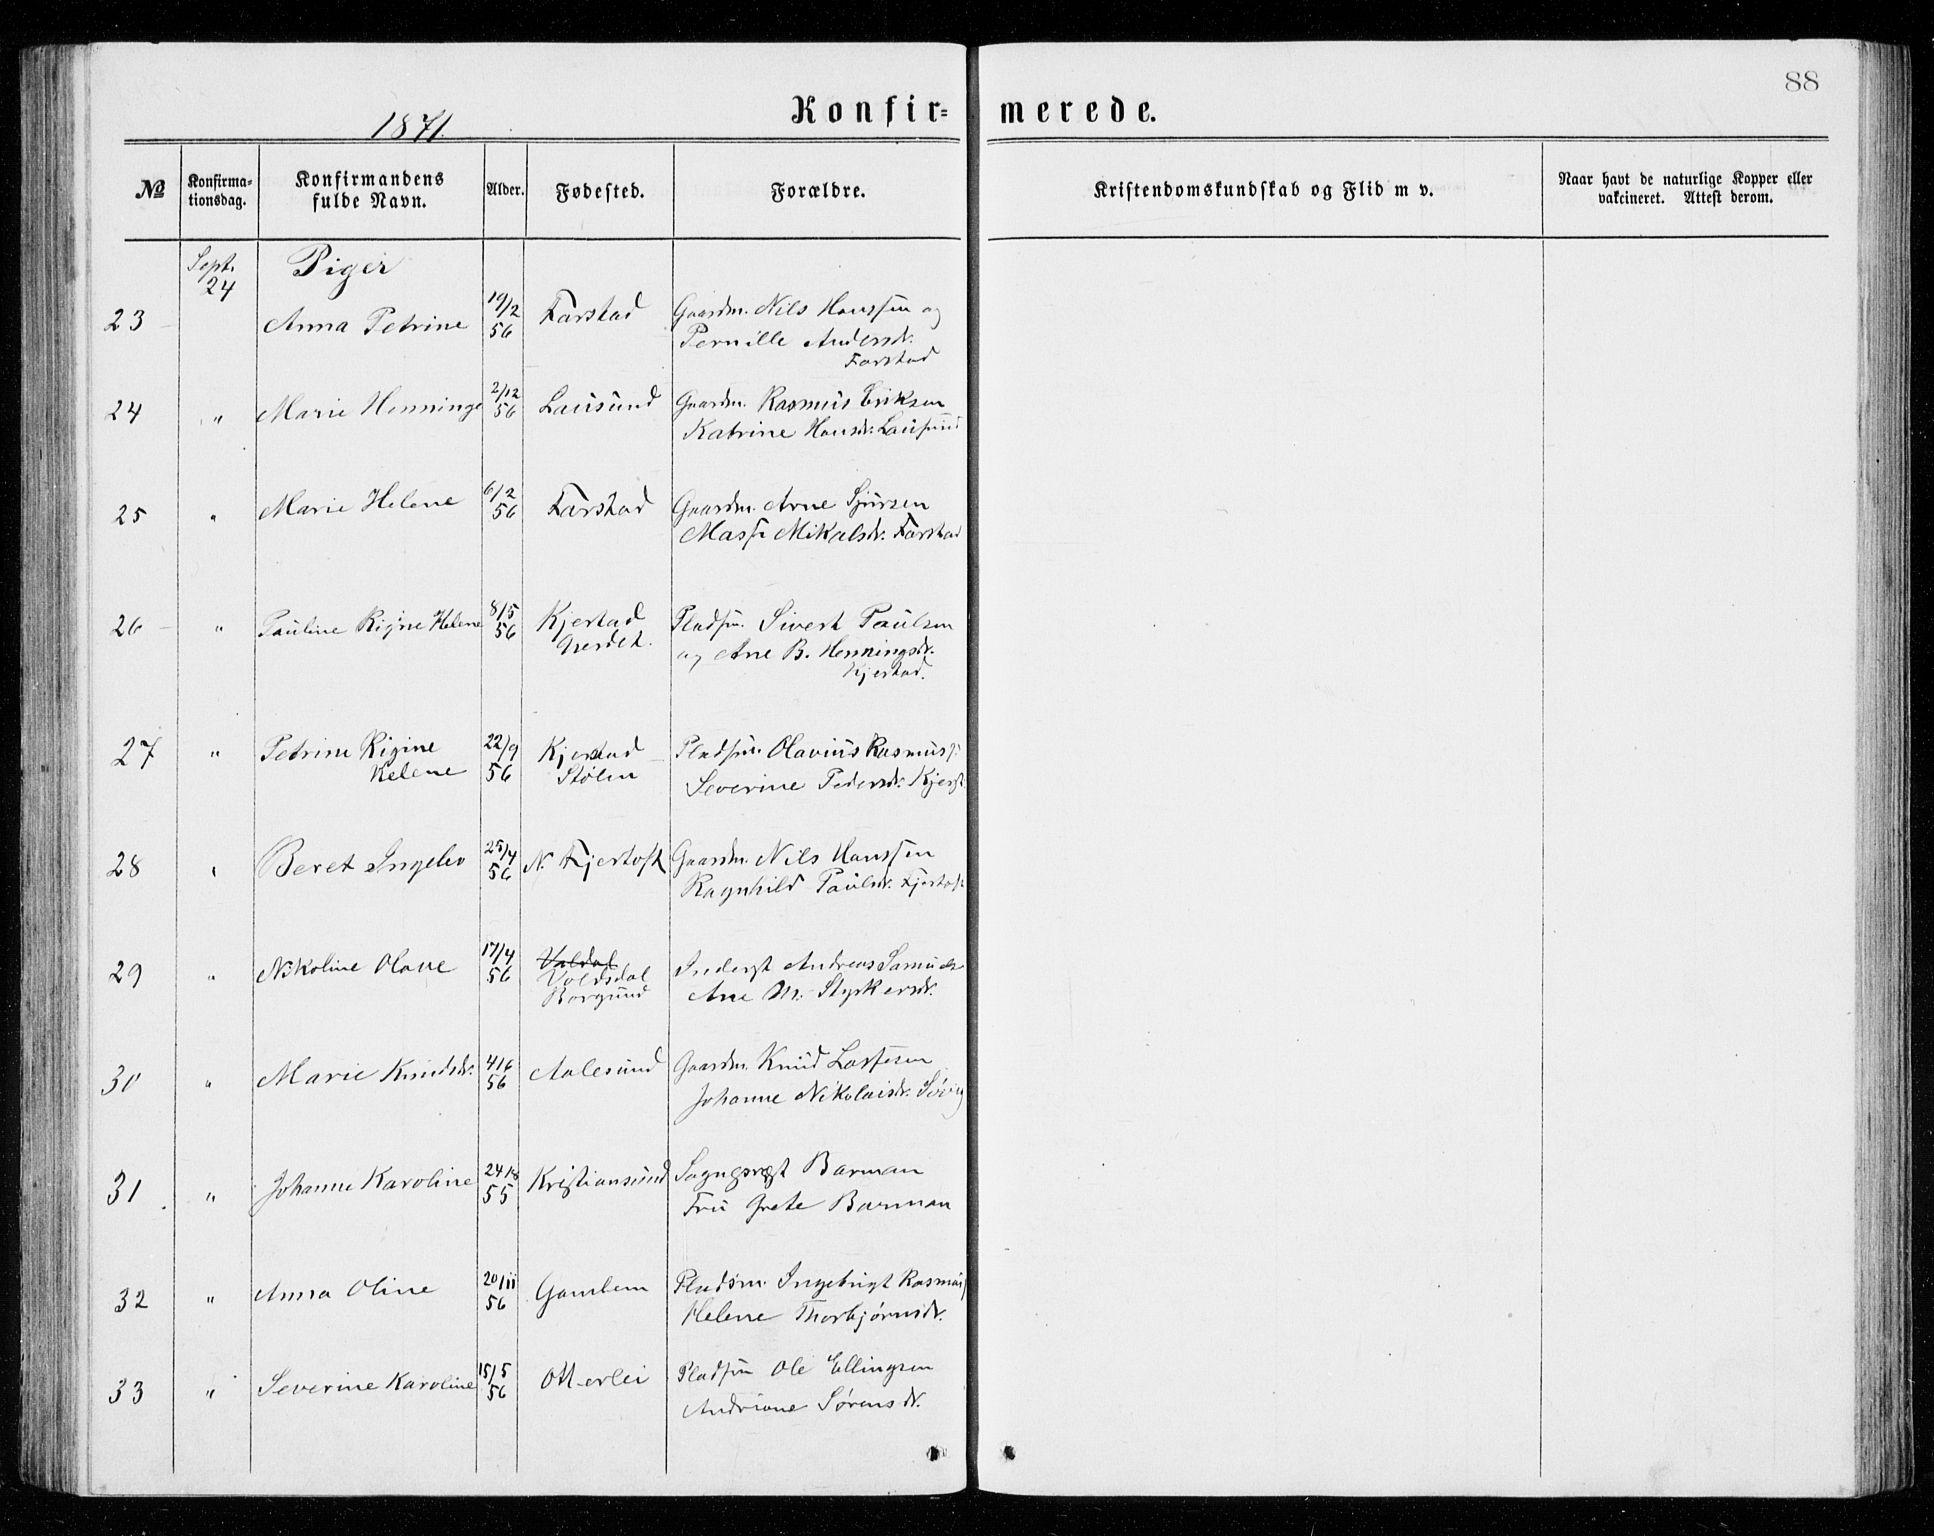 88
1871.
Konfir- merede.
№ Konfirma-tionsdag. Konfirmandens fulde Navn. Alder. Fødested. Forældre. Kristendomskundskab og Flid m v. Naar havt de naturlige Kopper eller vakcineret. Attest derom.
Sept. 24 Piger
23 Anna Petrine 19/2 56 Farstad Gaardm. Nils Hanssen og
Pernille Andersdr.
Farstad
24 " Marie Henninge 2/12 56 Lausund Gaardm. Rasmus Eriksen
Katrine Hansdr. Lausund
25 " Marie Helene 6/2 56 Farstad Gaardm. Arne Sjursen
Massi Mikalsdr. Farstad
26 " Pauline Rigne Helene 8/5 56 Kjerstad Pladsm. Sivert Paulsen
Gjerdet. og Ane B. Henningsdr.
Kjerstad.
27 " Petrine Rigine 22/9 56 Kjerstad Pladsm. Olavius Rasmuss
Helene Stølen Severine Pedersdr. Kjerst
28 " Beret Ingebo 25/4 56 N. Fjertoft Gaardm. Nils Hanssen
Ragnhild Paulsdr. Fjertoft
29 " Nikoline Olave 17/4 56 Valdal Inderst Andreas Samuels
Voldsdal Ane M. Styrkersdr.
Borgund
30 " Marie Knudsdr. 4/6 56 Aalesund Gaardm. Knud Lassesen
Johanne Nikolaisdr. Søvig
31 " Johanne Karoline 24/8 55 Kristiansund Sogngpræst Barman
Fru Grete Barman
32 " Anna Oline 20/11 56 Gamlem Pladsm. Ingebrigt Rasmuss
Helene Thorbjørnsdr.
33 " Severine Karoline 15/5 56 Otterlei Pladsm Ole Ellingsen
Andriane Sørensdr.